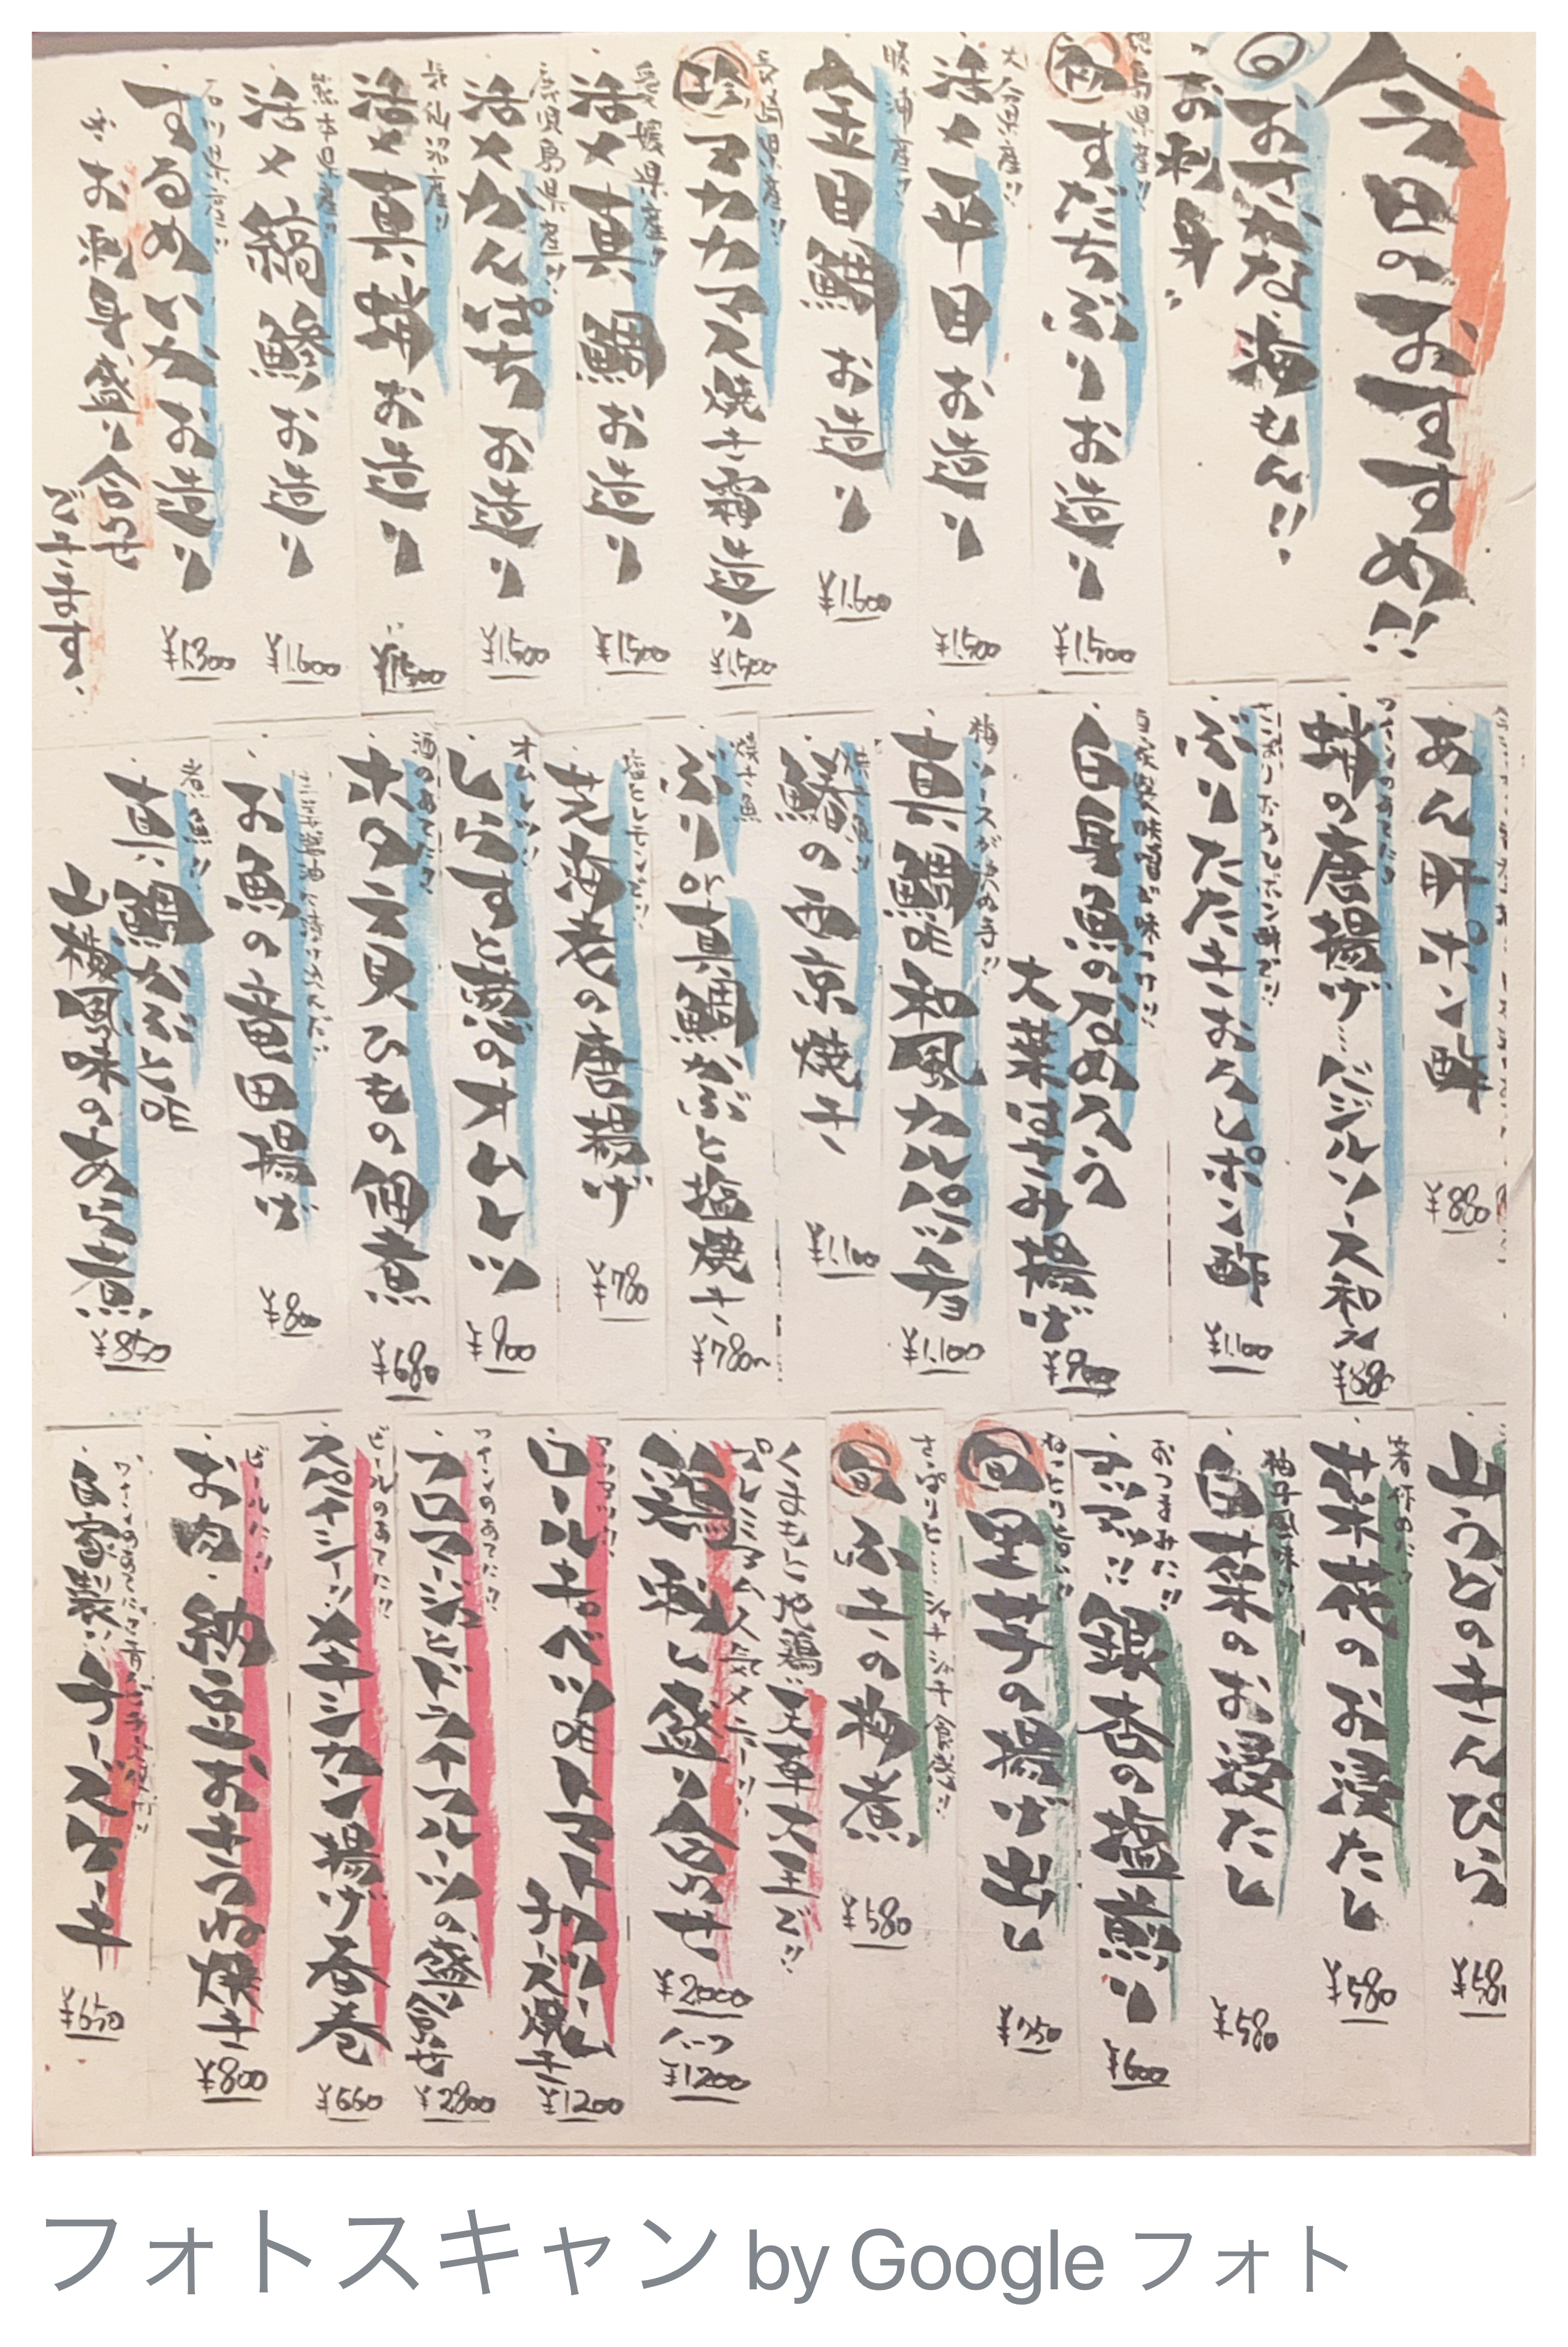 今日のおすすめ!!
旬
おさかな海もん!!
お刺身
すだちぶりお造り
¥1,500
大分県産!!
活〆平目お造り
¥1,500
勝浦産!!
金目鯛お造り
¥1,600
珍
マカカマス焼き霜造り
¥1,500
愛媛県産!!
活〆真鯛お造り
¥1,500
鹿児島県産!!
活〆かんぱち お造り
¥1,500
活〆真鯵お造り
¥1,500
熊本県産!!
活〆縞鯵お造り
¥1,600
石川県産!!
するめいかお造り
¥1,300
お刺身盛り合せ
できます。
あん肝ポン酢
¥880
ワインのあてに!!
蛸の唐揚げ…バジルソース和え
¥880
ぶりたたきおろしポン酢
¥1,100
自家製味噌が味つけ!!
白身魚のなめろう
大葉はさみ揚げ
¥900
梅ソースが決め手!!
真鯛の和風カルパッチョ
¥1,100
焼き魚!!
鰆の西京焼き
¥1,100
焼き魚
ぶりor真鯛かぶと塩焼き
¥780~
塩とレモンだ!!
芝海老の唐揚げ
¥780
オムレツ!!
しらすと葱のオムレツ
¥900
酒のあてに!!
ホタテ貝ひもの佃煮
¥680
お魚の竜田揚げ
¥800
煮魚!!
真鯛かぶとor
山椒風味のあら煮
¥850
山うどのきんぴら
¥580
菜花のお浸たし
¥580
柚子風味!!
白菜のお浸たし
¥580
おつまみに!!
銀杏の塩煎り
¥600
ねっとり旨い!!
旬
里芋の揚げ出し
¥750
さっぱりと…シャキシャキ食感!!
旬
ふきの梅煮
¥580
くまもと地鶏“天草大王”で!!
プレミアム人気メニュー!!
鶏刺し盛り合わせ
¥2000
ハーフ
¥1200
アツアツ!!
ロールキャベツのトマトクリーム
チーズ焼き
¥1200
ワインのあてに!!
フロマージュとドライフルーツの盛合せ
¥2800
ビールのあてに!!
スパイシー!!メキシカン揚げ春巻
¥660
ビールに!!
お肉・納豆おきつね焼き
¥800
自家製!!チーズケーキ
¥650
フォトスキャン by Google フォト